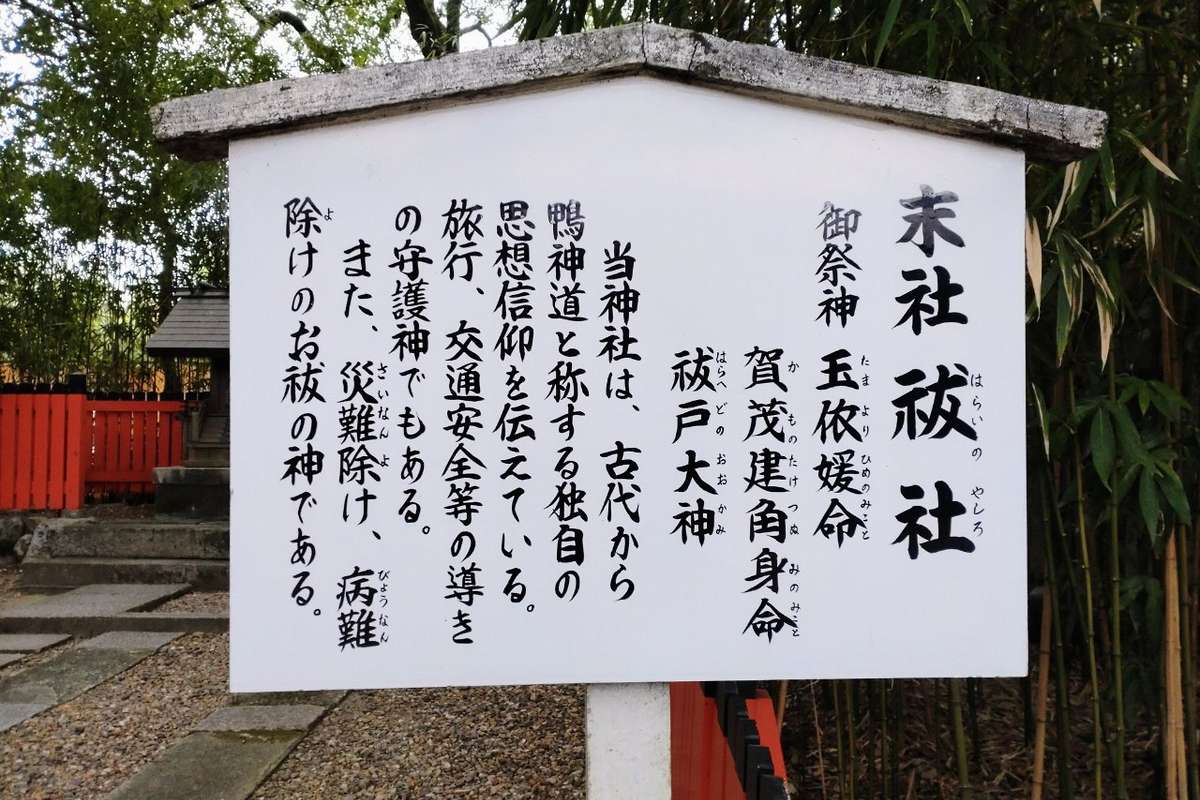 末社 祓社
はらいの やしろ
御祭神 玉依媛命
たま より ひめのみこと
賀茂建角身命
か ものたけ つぬ みのみこと
祓戸大神
はらへ どの おお かみ
当神社は、古代から
鴨神道と称する独自の
思想信仰を伝えている。
旅行、交通安全等の導き
の守護神でもある。
また、災難除け、病難
さいなん よ びょうなん
除けのお祓の神である。
よ